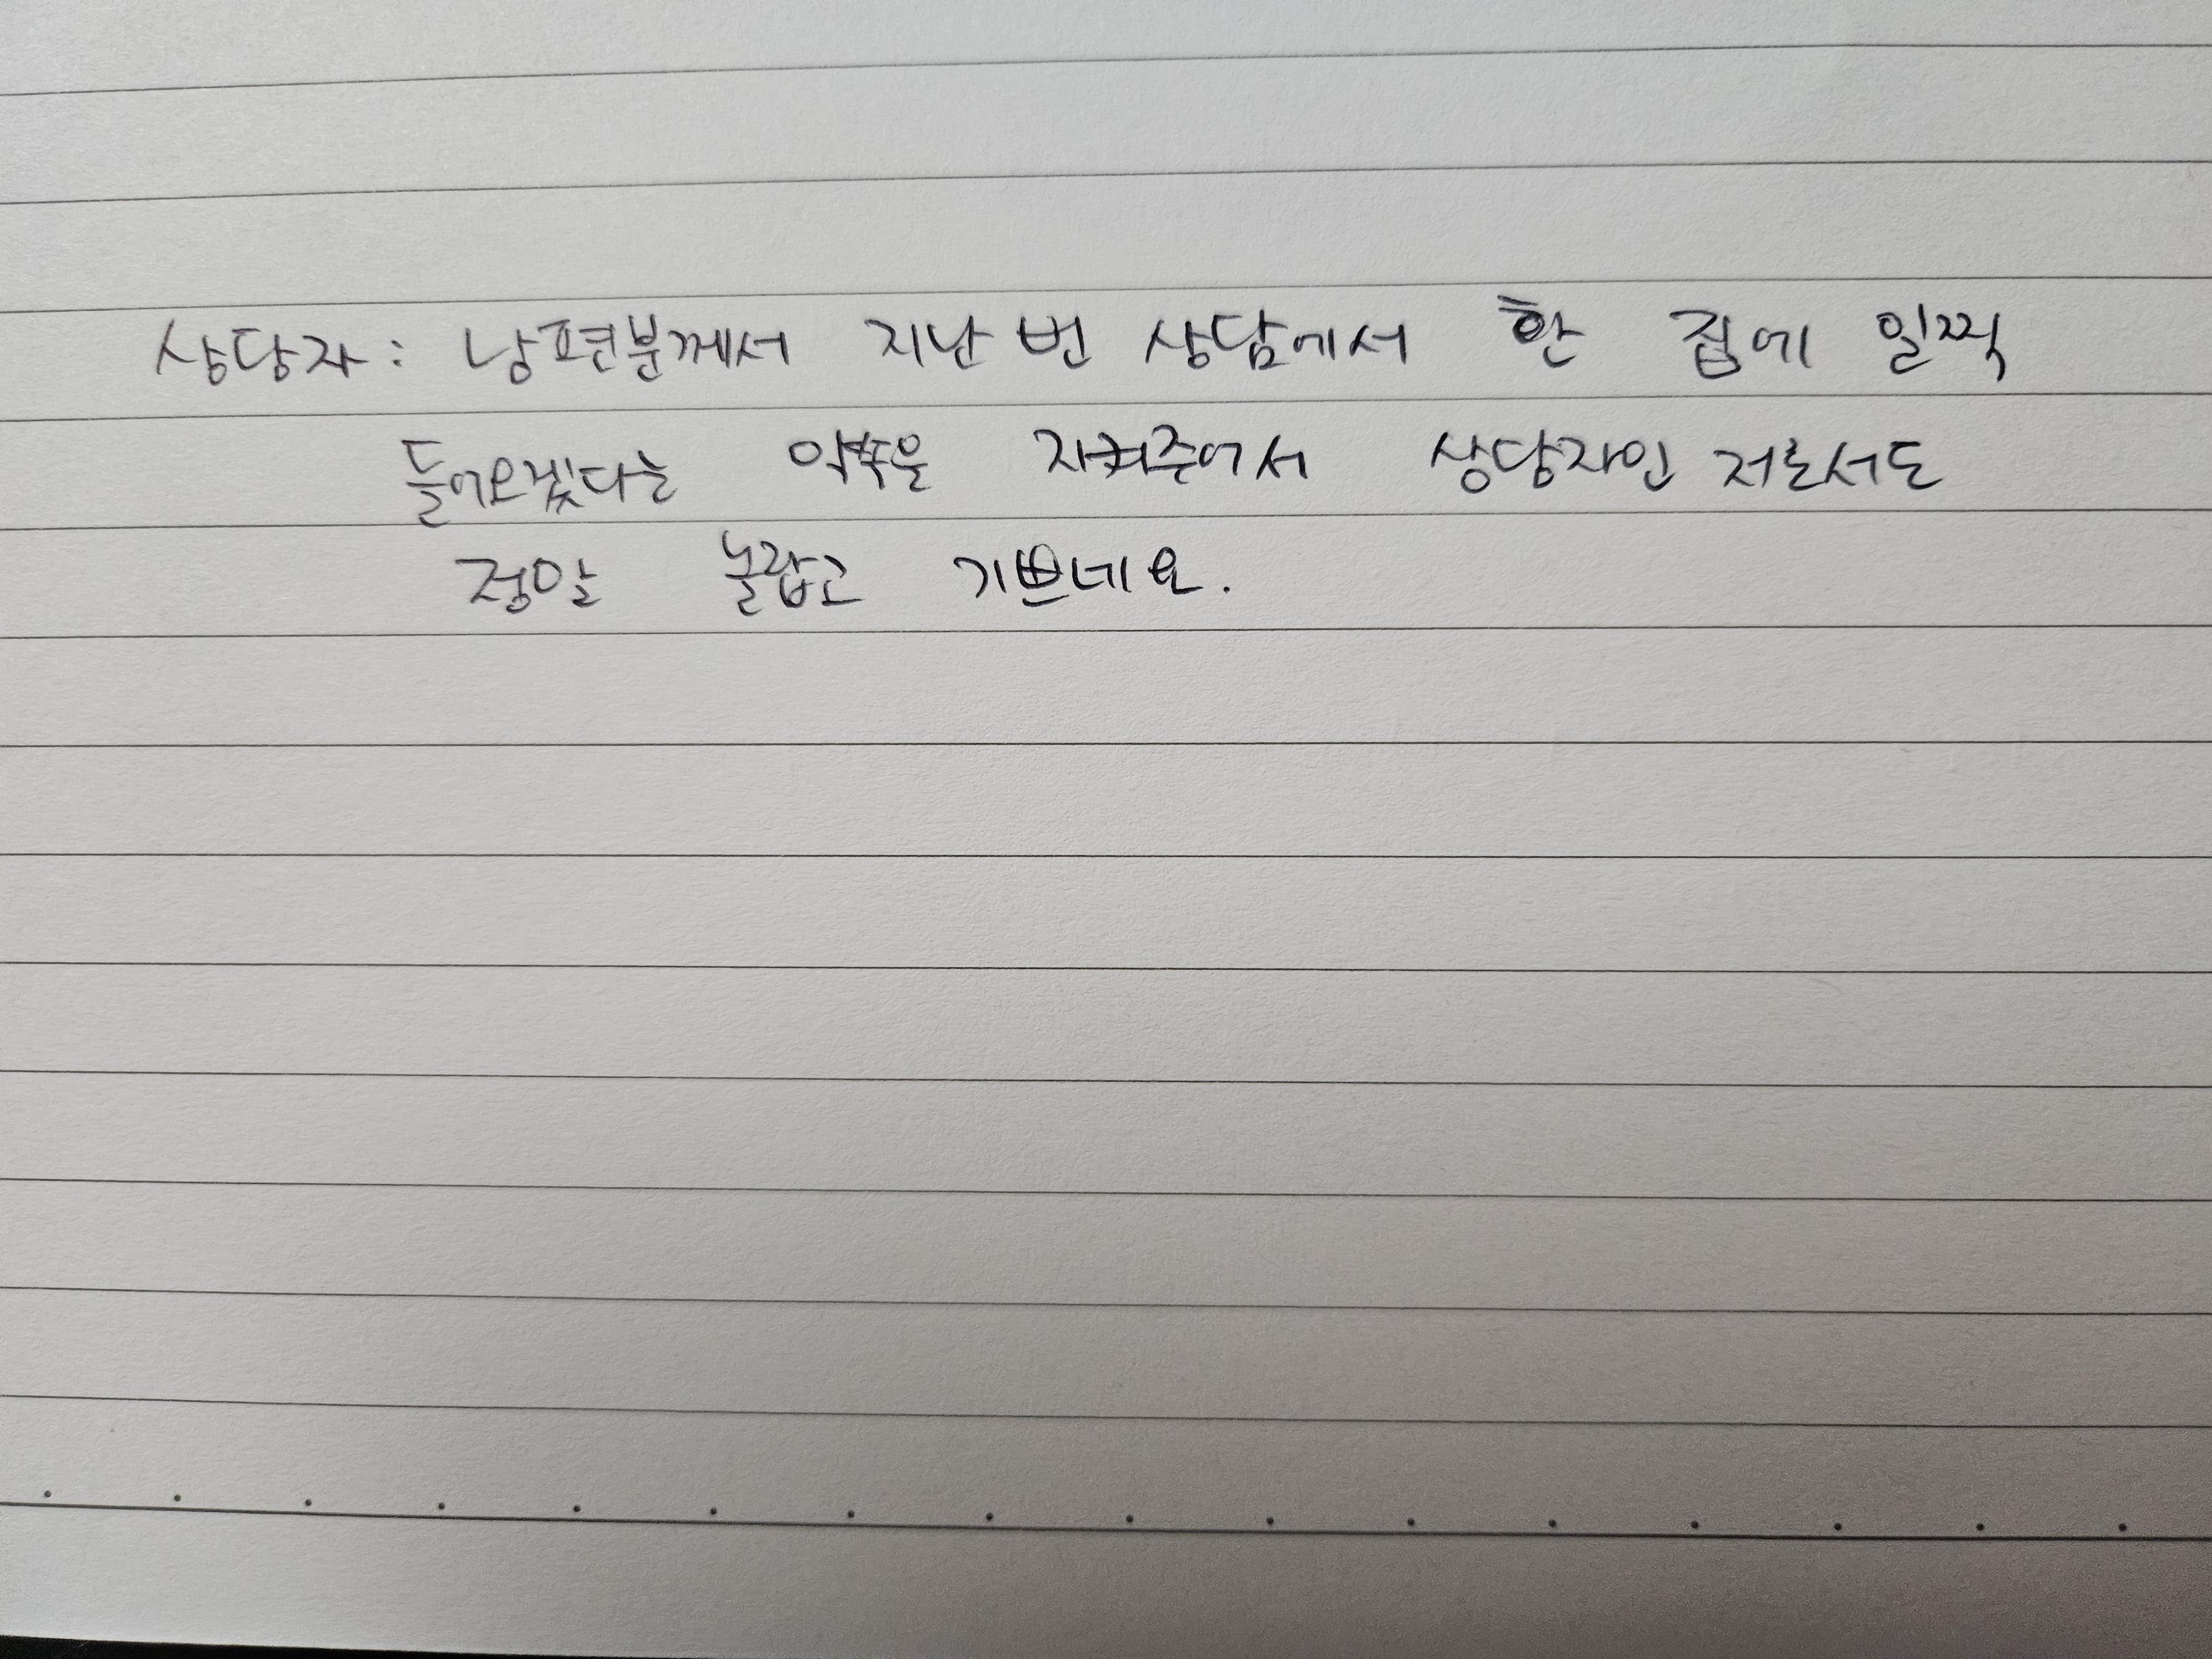 상담자: 남편분께서 지난 번 상담에서 한 집에 일찍
들어오겠다는 약속을 지켜주어서 상담자인 저로서도
정말 놀랍고 기쁘네요.